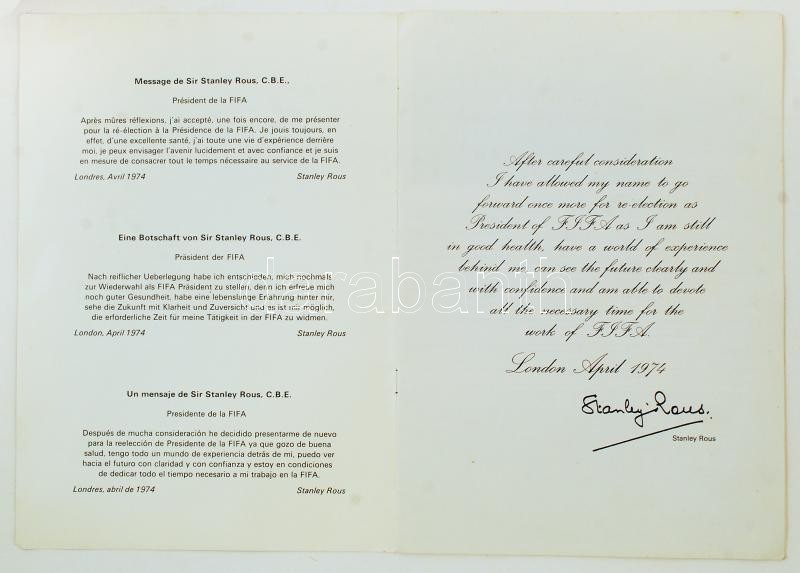 Message de Sir Stanley Rous, C.B.E.,
Président de la FIFA
Après mûres réflexions, j'ai accepté, une fois encore, de me présenter
pour la ré-élection à la Présidence de la FIFA. Je jouis toujours, en
effet, d'une excellente santé, j'ai toute une vie d'expérience derrière
moi, je peux envisager l'avenir lucidement et avec confiance et je suis
en mesure de consacrer tout le temps nécessaire au service de la FIFA.
Londres, Avril 1974 Stanley Rous
Eine Botschaft von Sir Stanley Rous, C.B.E.
Präsident der FIFA
Nach reiflicher Ueberlegung habe ich entschieden, mich nochmals
zur Wiederwahl als FIFA Präsident zu stellen, denn ich erfreue mich
noch guter Gesundheit, habe eine lebenslange Erfahrung hinter mir,
sehe die Zukunft mit Klarheit und Zuversicht und es ist mir möglich,
die erforderliche Zeit für meine Tätigkeit in der FIFA zu widmen.
London, April 1974 Stanley Rous
Un mensaje de Sir Stanley Rous, C.B.E.
Presidente de la FIFA
Después de mucha consideración he decidido presentarme de nuevo
para la reelección de Presidente de la FIFA ya que gozo de buena
salud, tengo todo un mundo de experiencia detrás de mi, puedo ver
hacia el futuro con claridad y con confianza y estoy en condiciones
de dedicar todo el tiempo necesario a mi trabajo en la FIFA.
Londres, abril de 1974 Stanley Rous
After careful consideration
I have allowed my name to go
forward once more for re-election as
President of FIFA as I am still
in good health, have a world of experience
behind me, can see the future clearly and
with confidence and am able to devote
all the necessary time for the
work of FIFA.
London April 1974
Stanley Rous.
Stanley Rous
darabanth